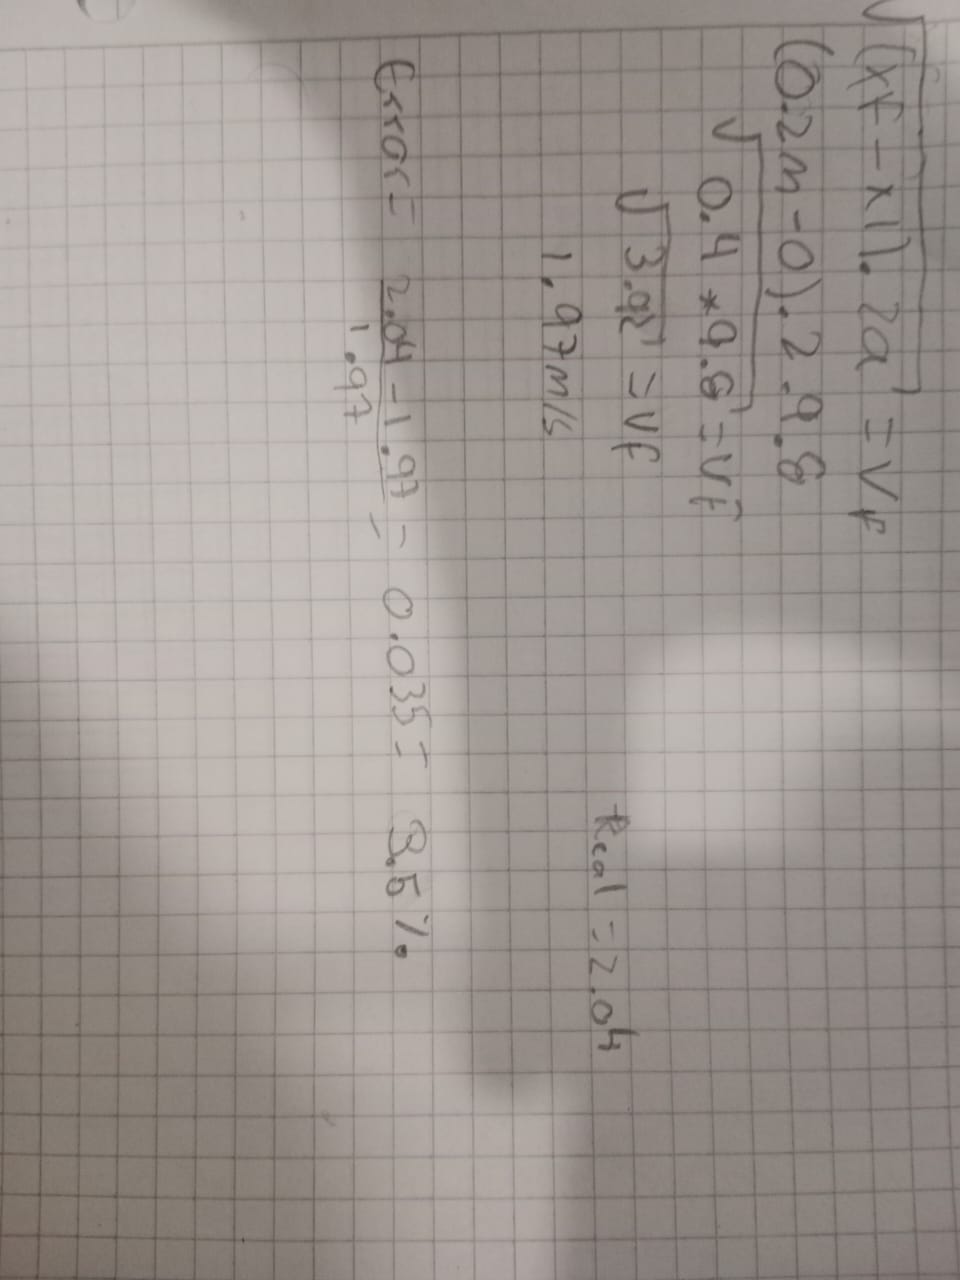 √(xf-xi).2a = Vf
(0.2m-0).2.9.8
√0.4*9.8 = Vf
√3.92 = Vf
1.97m/s
Real = 2.04
Error = 2.04-1.97 = 0.035 = 3.5%
1.97